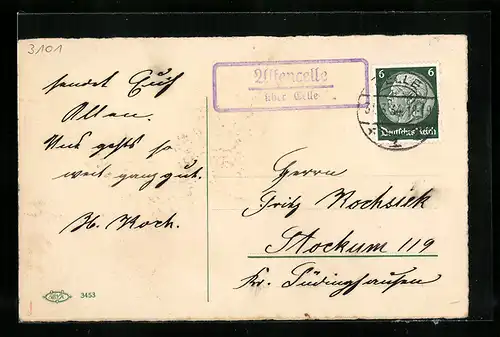 3101
sendet Euch
Allen.
Uns gehts so
weit ganz gut.
H. Koch.
Altencelle
über Celle
CELLE
6 6
Deutsches Reich
Herrn
Fritz Kochsiek
Stockum 119
Kr. Lüdinghausen
3453